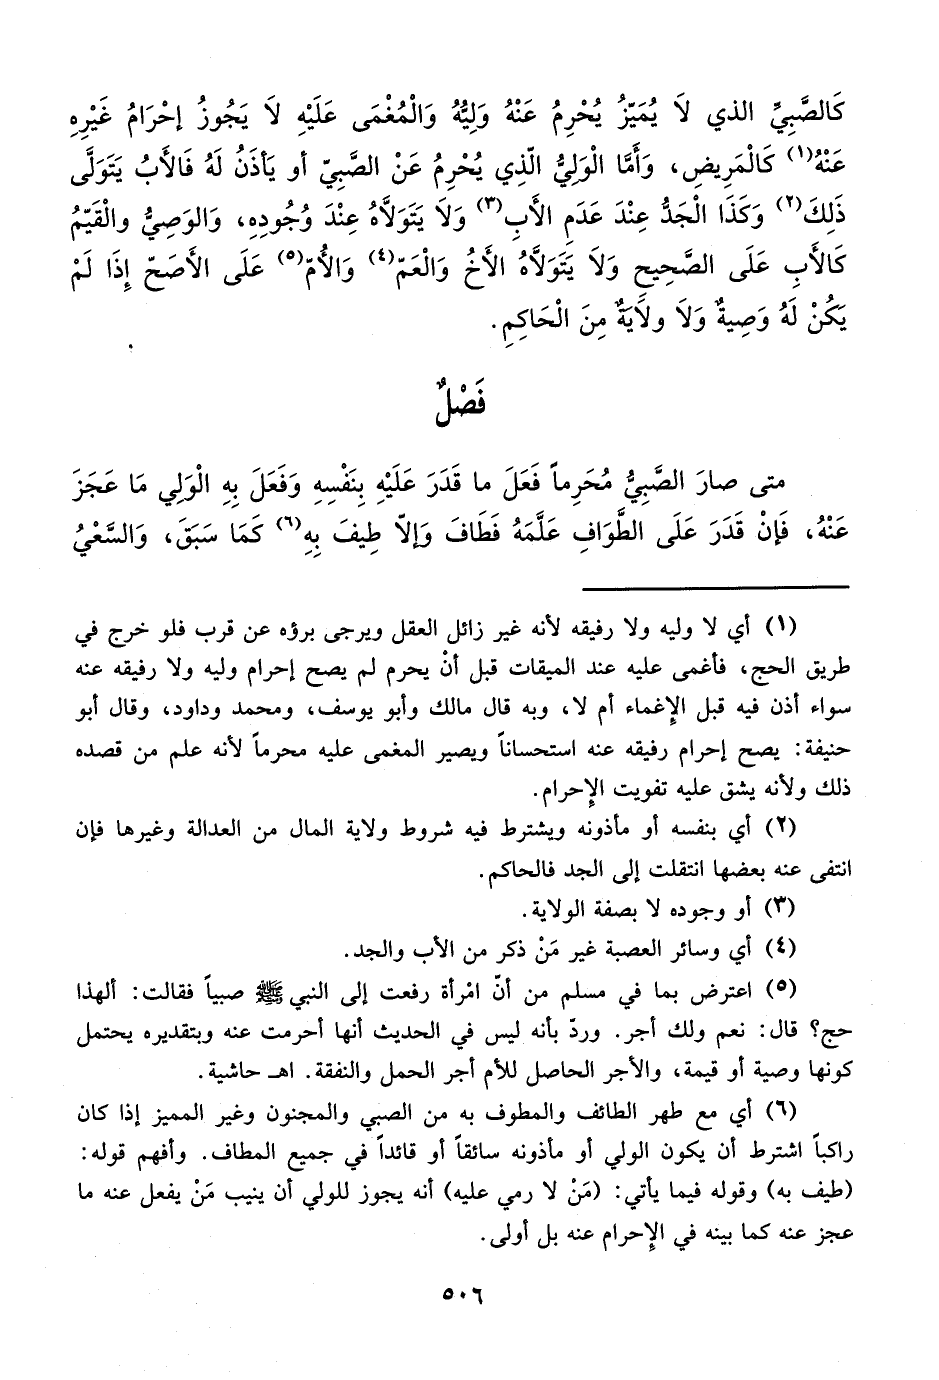 كَالصَّبِيِّ الذي لاَ يُمَيّزُ يُحْرِمُ عَنْهُ وَلِيُّهُ وَالْمُغْمَى عَلَيْهِ لاَ يَجُوزُ إحْرَامُ غَيْرِهِ
عَنْهُ(١) كَالْمَرِيضِ، وَأَمَّا الْوَلِيُّ الّذِي يُحْرِمُ عَنْ الصَّبِيّ أو يَأذَنُ لَهُ فَالأبُ يَتَوَلَّى
ذَلِكَ(٢) وَكَذَا الْجَدُّ عِنْدَ عَدَمِ الأبِ(٣) وَلاَ يَتَوَلاَّهُ عِنْدَ وُجُودِهِ، وَالوَصِيُّ والْقَيّمُ
كَالأبِ عَلَى الصَّحِيحِ وَلاَ يَتَوَلاَّهُ الأخُ وَالْعَمّ(٤) وَالأُمّ(٥) عَلَى الأصَحّ إذَا لَمْ
يَكُنْ لَهُ وَصِيةٌ وَلاَ ولاَيَةٌ مِنَ الْحَاكِمِ.
فَصْلٌ
متى صارَ الصَّبِيُّ مُحَرِماً فَعَلَ ما قَدَرَ عَلَيْهِ بِنَفْسِهِ وَفَعَلَ بِهِ الْوَلِي مَا عَجَزَ
عَنْهُ، فَإنْ قَدَرَ عَلَى الطَّوَافِ عَلَّمَهُ فَطَافَ وَإلاّ طِيفَ بِهِ(٦) كَمَا سَبَقَ، وَالسَّعْيُ
(١) أي لا وليه ولا رفيقه لأنه غير زائل العقل ويرجى برؤه عن قرب فلو خرج في
طريق الحج، فأغمى عليه عند الميقات قبل أنْ يحرم لم يصح إحرام وليه ولا رفيقه عنه
سواء أذن فيه قبل الإغماء أم لا، وبه قال مالك وأبو يوسف، ومحمد وداود، وقال أبو
حنيفة: يصح إحرام رفيقه عنه استحساناً ويصير المغمى عليه محرماً لأنه علم من قصده
ذلك ولأنه يشق عليه تفويت الإحرام.
(٢) أي بنفسه أو مأذونه ويشترط فيه شروط ولاية المال من العدالة وغيرها فإن
انتفى عنه بعضها انتقلت إلى الجد فالحاكم.
(٣) أو وجوده لا بصفة الولاية.
(٤) أي وسائر العصبة غير مَنْ ذكر من الأب والجد.
(٥) اعترض بما في مسلم من أنّ امْرأة رفعت إلى النبي ﷺ صبياً فقالت: ألهذا
حج؟ قال: نعم ولك أجر. وردّ بأنه ليس في الحديث أنها أحرمت عنه وبتقديره يحتمل
كونها وصية أو قيمة، والأجر الحاصل للأم أجر الحمل والنفقة. اهـ حاشية.
(٦) أي مع طهر الطائف والمطوف به من الصبي والمجنون وغير المميز إذا كان
راكباً اشترط أن يكون الولي أو مأذونه سائقاً أو قائداً في جميع المطاف. وأفهم قوله:
(طيف به) وقوله فيما يأتي: (مَنْ لا رمي عليه) أنه يجوز للولي أن ينيب مَنْ يفعل عنه ما
عجز عنه كما بينه في الإحرام عنه بل أولى.
٥٠٦